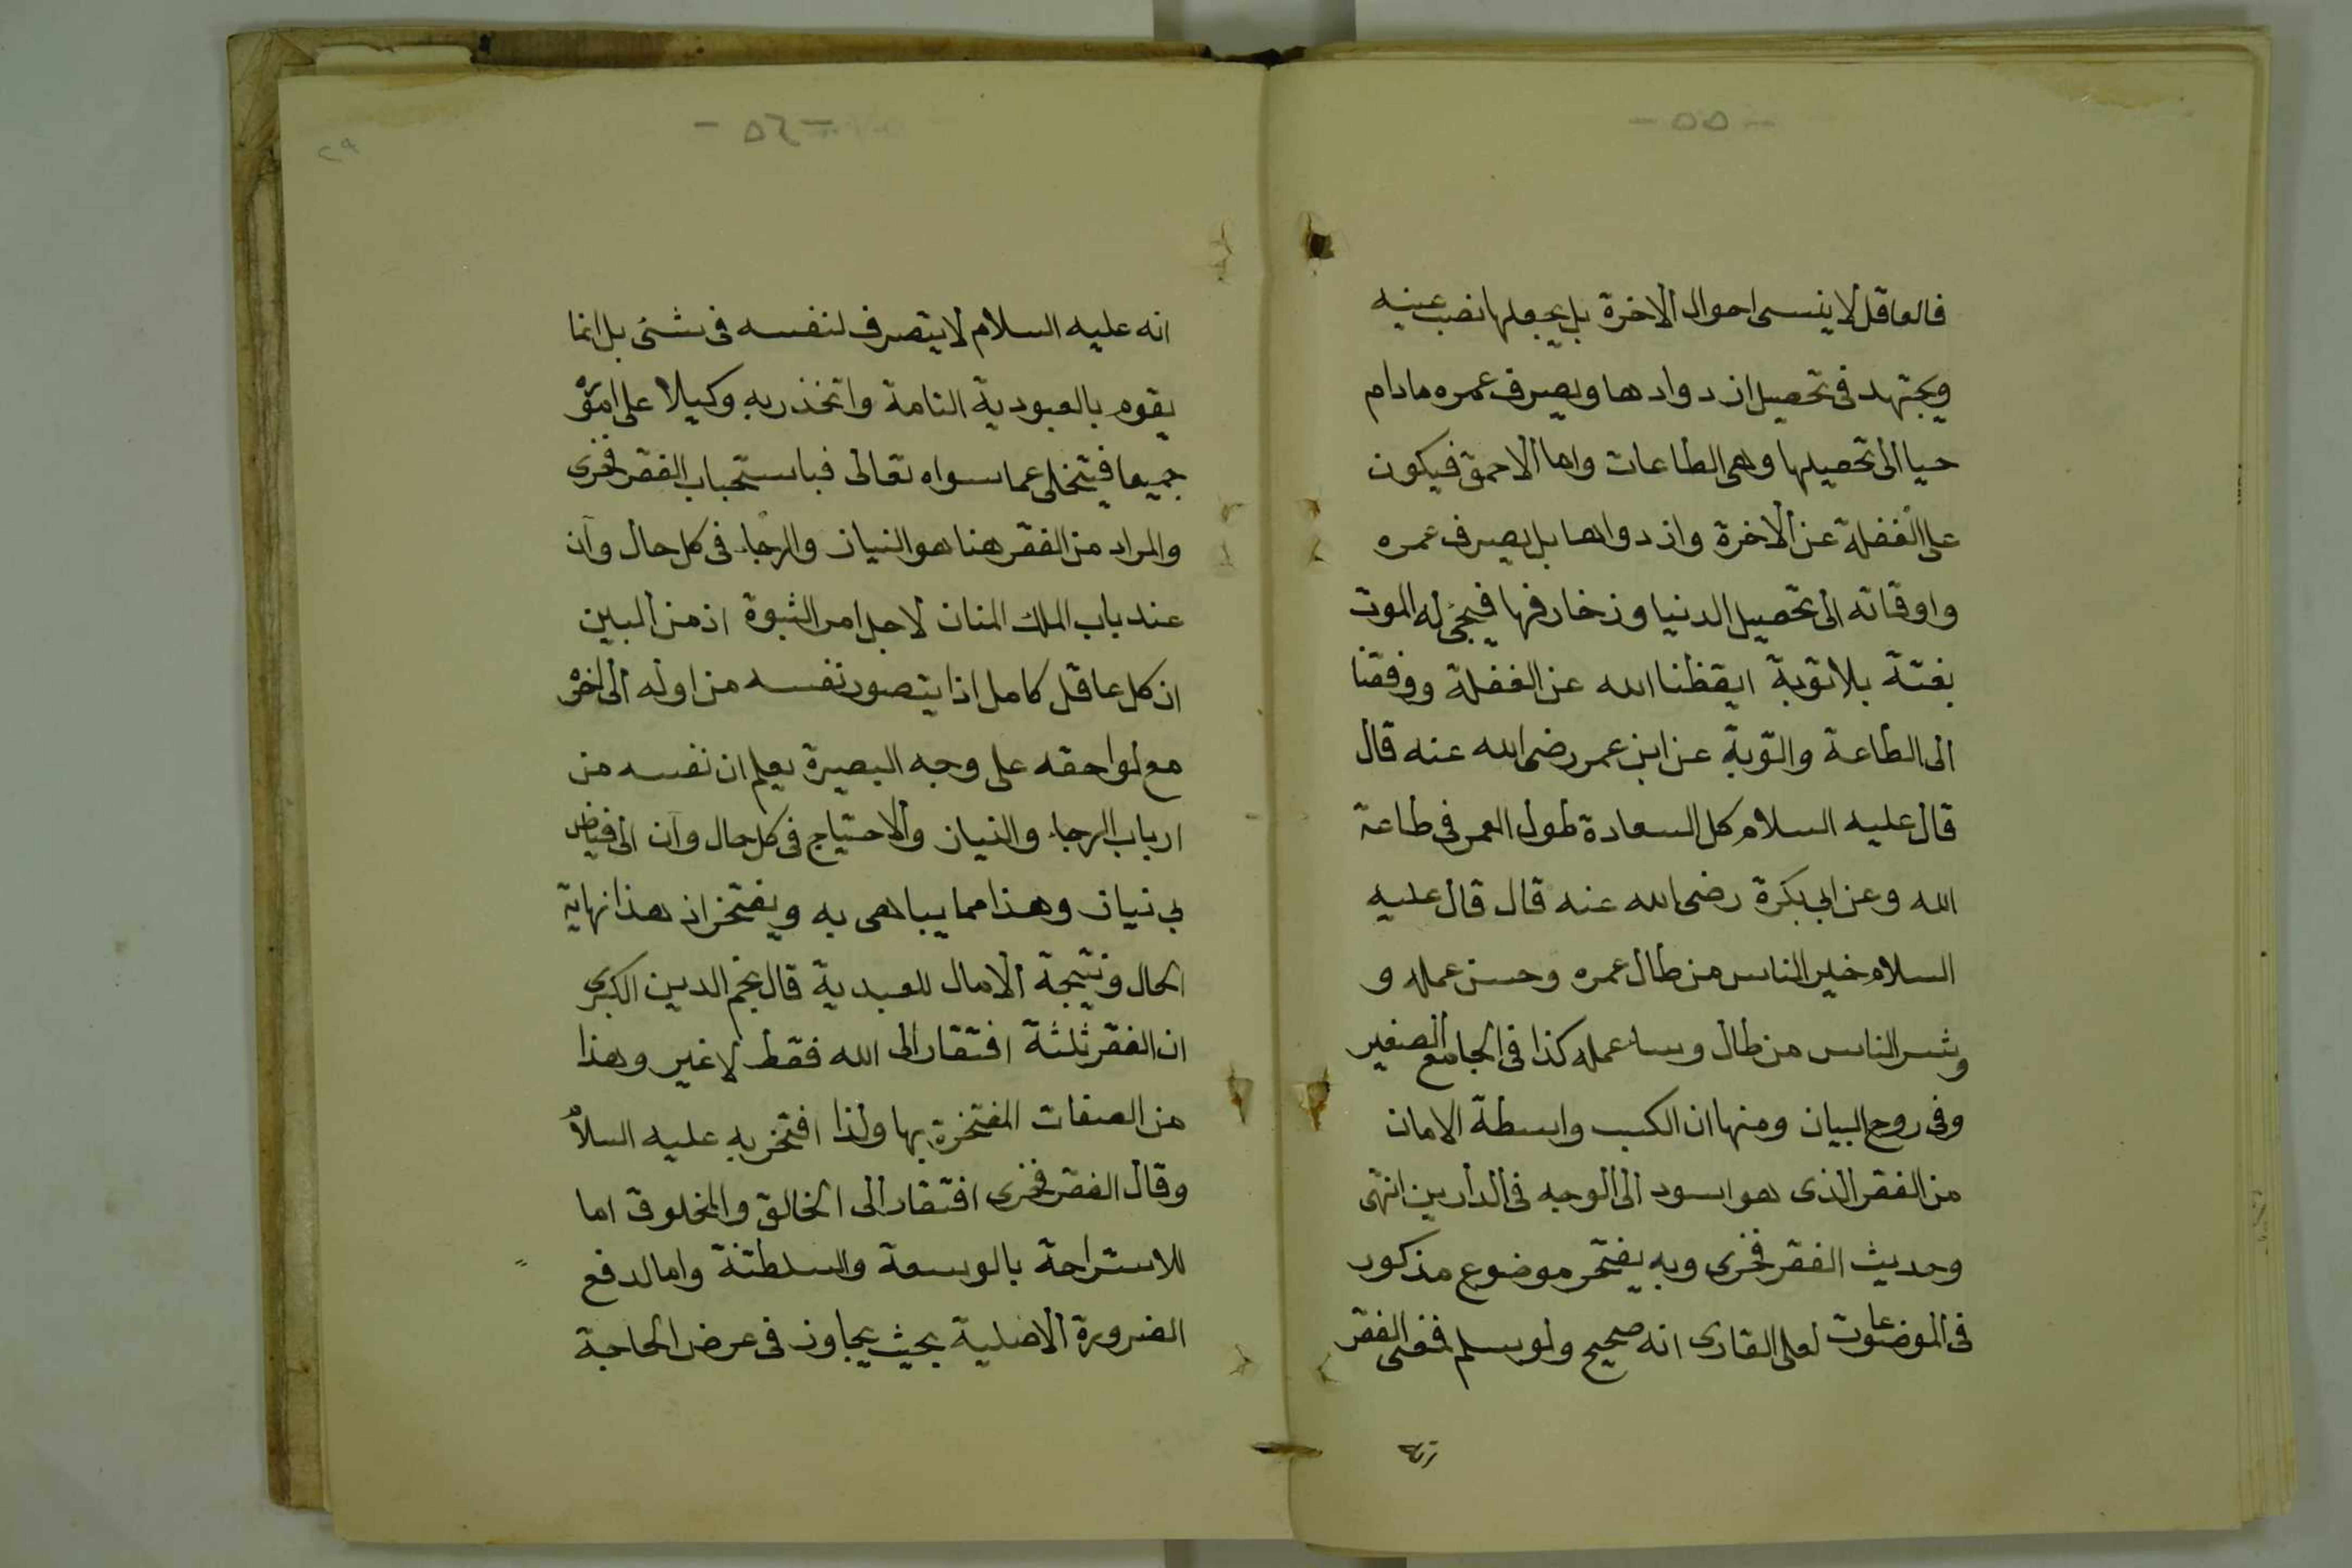 - ٥٥ -
فالعاقل لا ينسى احوال الاخرة بل يجعلها نصب عينيه
ويجتهد فى تحصيل ازدوادها ويصرف عمره مادام
حيا الى تحصيلها وهى الطاعات واما الاحمق فيكون
على الغفلة عن الاخرة وازدوادها بل يصرف عمره
واوقاته الى تحصيل الدنيا وزخارفها فيجئ له الموت
بغتة بلا توبة ايقظنا الله عن الغفلة ووفقنا
الى الطاعة والتوبة عن ابن عمر رضى الله عنه قال
قال عليه السلام كل السعادة طول العمر فى طاعة
الله وعن ابى بكرة رضى الله عنه قال قال عليه
السلام خير الناس من طال عمره وحسن عمله و
وشر الناس من طال وساء عمله كذا فى الجامع الصغير
وفى روح البيان ومنها ان الكسب واسطة الامان
من الفقر الذى هو اسود الى الوجه فى الدارين انتهى
وحديث الفقر فخرى وبه يفتخر موضوع مذكور
فى الموضوعات لعلى القارى انه صحيح ولو سلم فمعنى الفقر
- ٥٦ -
٢٩
انه عليه السلام لا يتصرف لنفسه فى شئ بل انما
يقوم بالعبودية التامة واتخذ ربه وكيلا على اموره
جميعا فيتخلى عما سواه تعالى فباستحباب الفقر فخرى
والمراد من الفقر هنا هو النياز والرجاء فى كل حال وآن
عند باب الملك المنان لاجل امر الثبوة اذ من المبين
ان كل عاقل كامل اذا يتصور نفسه من اوله الى اخره
مع لواحقه على وجه البصيرة يعلم ان نفسه من
ارباب الرجاء والنياز والاحتياج فى كل حال وآن الى فياض
بى نياز وهذا مما يباهى به ويفتخر اذ هذا نهاية
الحال ونتيجة الامال للعبدية قال نجم الدين الكبرى
ان الفقر ثلثة افتقار الى الله فقط لا غير وهذا
من الصفات المفتخرة بها ولذا افتخر به عليه السلام
وقال الفقر فخرى افتقار الى الخالق والمخلوق اما
للاستراحة بالوسعة والسلطنة واما لدفع
الضرورة الاصلية بحيث يجاوز فى عرض الحاجة